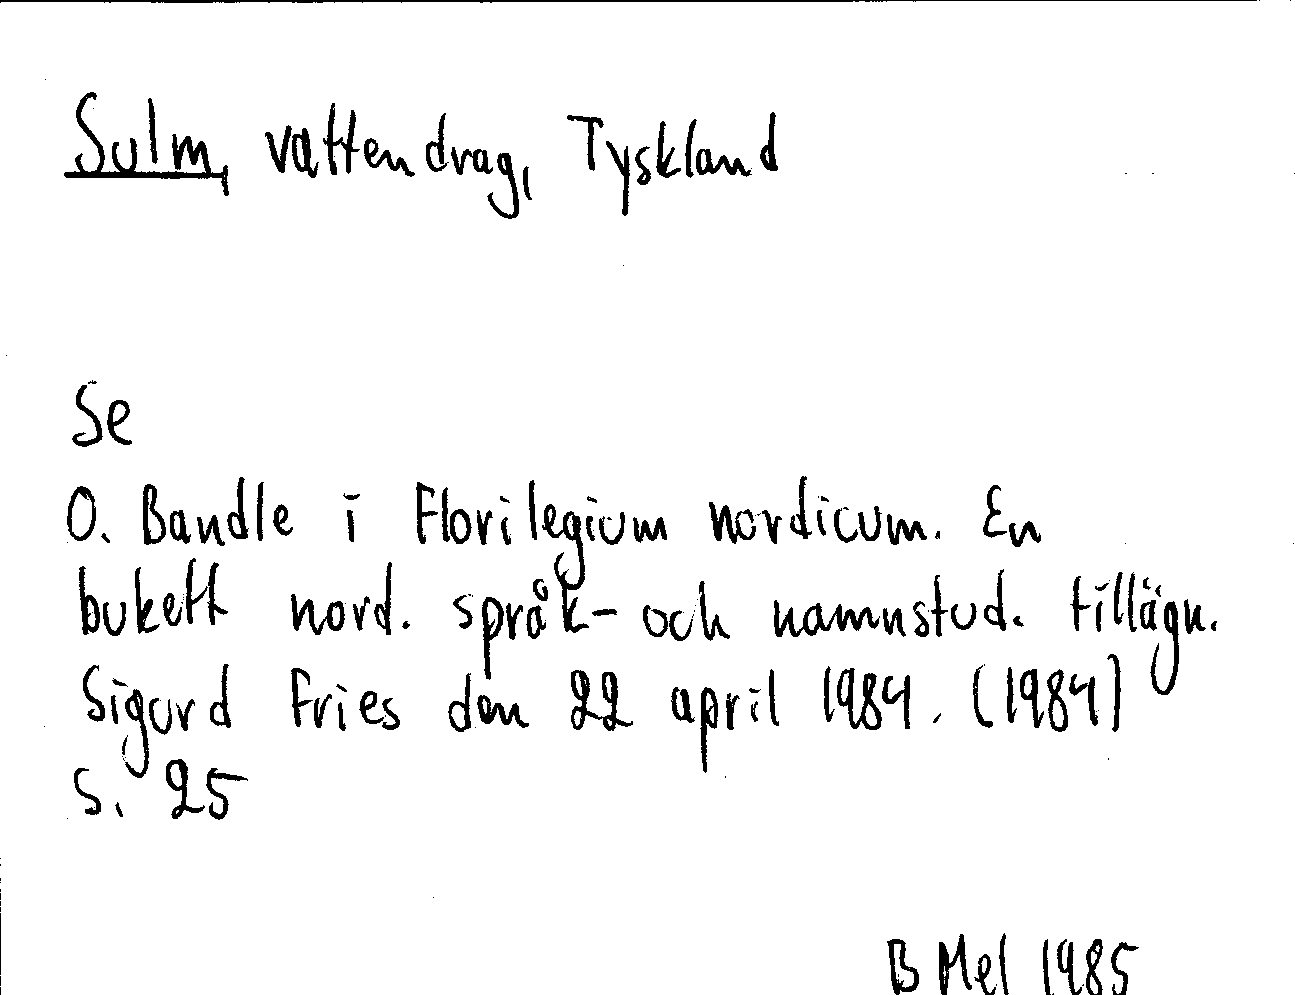 Sulm, vattendrag, Tyskland
Se
O. Bandle i Florilegium nordicum. En
bukett nord. språk- och namnstud. tillägn.
Sigurd Fries den 22 april 1984. (1984)
s. 25
B Mel 1985